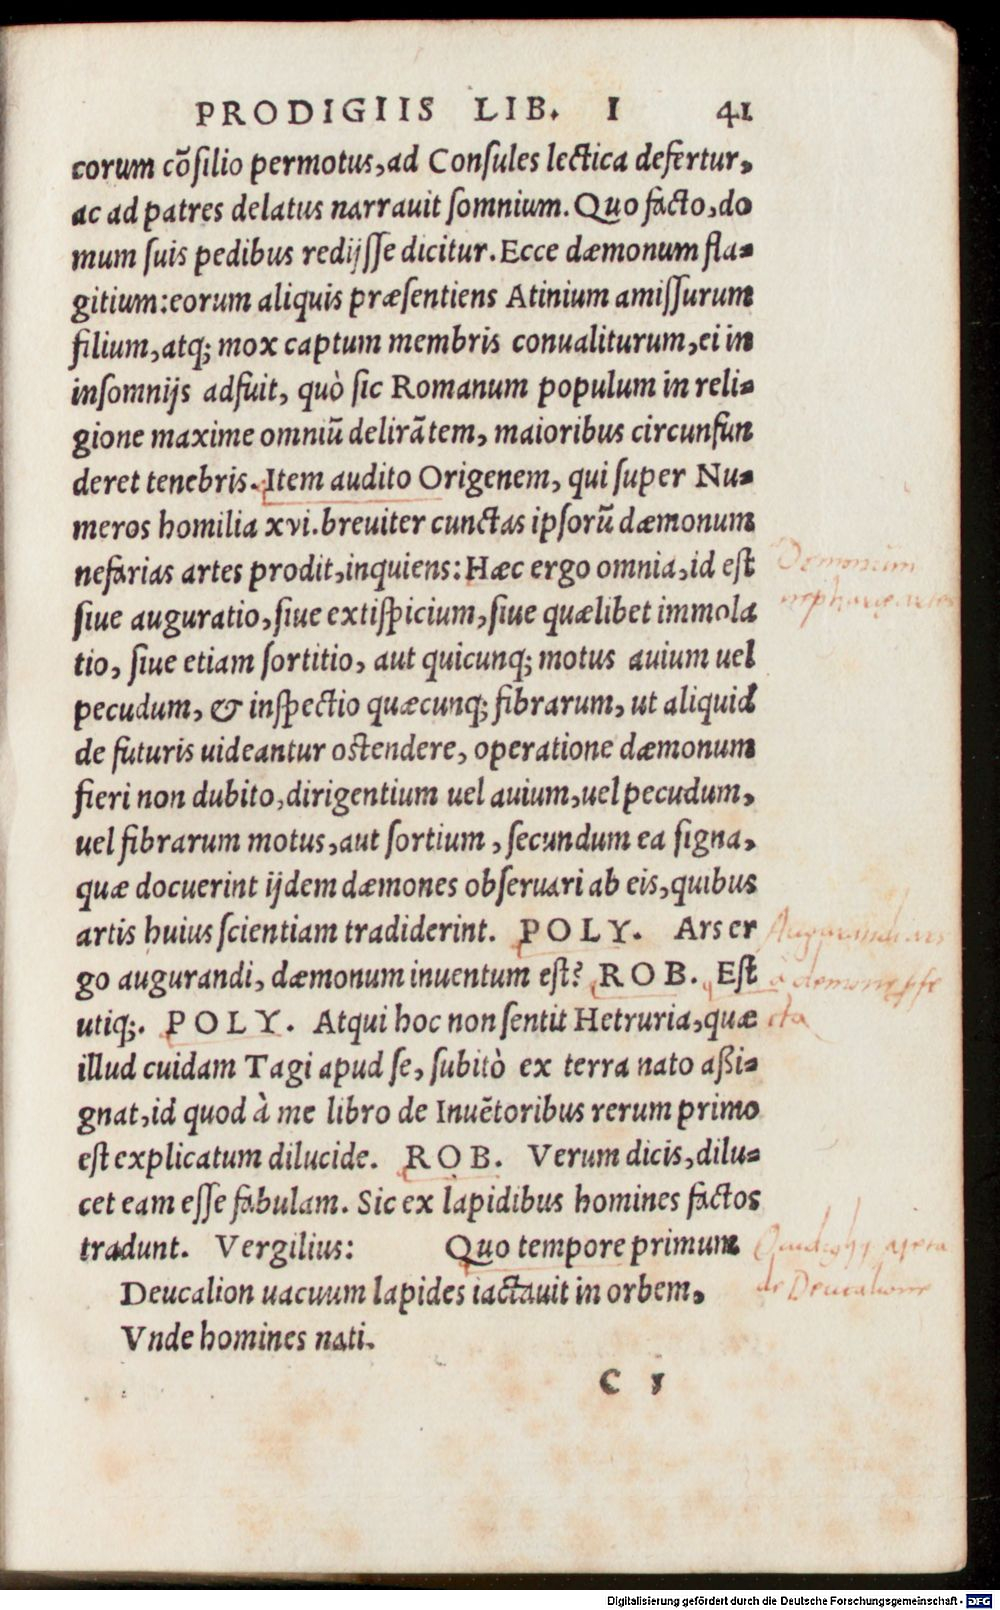 PRODIGIIS LIB. I 41
corum cõsilio permotus, ad Consules lectica defertur,
ac ad patres delatus narrauit somnium. Quo facto, do
mum suis pedibus redijsse dicitur. Ecce dæmonum fla-
gitium: eorum aliquis præsentiens Atinium amissurum
filium, atq; mox captum membris conualiturum, ei in
insomnijs adfuit, quò sic Romanum populum in reli-
gione maxime omniũ delirãtem, maioribus circunfun
deret tenebris. Item audito Origenem, qui super Nu-
meros homilia xvi. breuiter cunctas ipsorũ dæmonum
nefarias artes prodit, inquiens: Hæc ergo omnia, id est
siue auguratio, siue extispicium, siue quælibet immola
tio, siue etiam sortitio, aut quicunq; motus auium uel
pecudum, & inspectio quæcunq; fibrarum, ut aliquid
de futuris uideantur ostendere, operatione dæmonum
fieri non dubito, dirigentium uel auium, uel pecudum,
uel fibrarum motus, aut sortium, secundum ea signa,
quæ docuerint ijdem dæmones obseruari ab eis, quibus
artis huius scientiam tradiderint. POLY. Ars er
go augurandi, dæmonum inuentum est? ROB. Est
utiq;. POLY. Atqui hoc non sentit Hetruria, quæ
illud cuidam Tagi apud se, subitò ex terra nato aßi-
gnat, id quod à me libro de Inuẽtoribus rerum primo
est explicatum dilucide. ROB. Verum dicis, dilu-
cet eam esse fabulam. Sic ex lapidibus homines factos
tradunt. Vergilius: Quo tempore primum
Deucalion uacuum lapides iactauit in orbem,
Vnde homines nati.
C 5
Demonum
de Deucalione
Digitalisierung gefördert durch die Deutsche Forschungsgemeinschaft - DFG